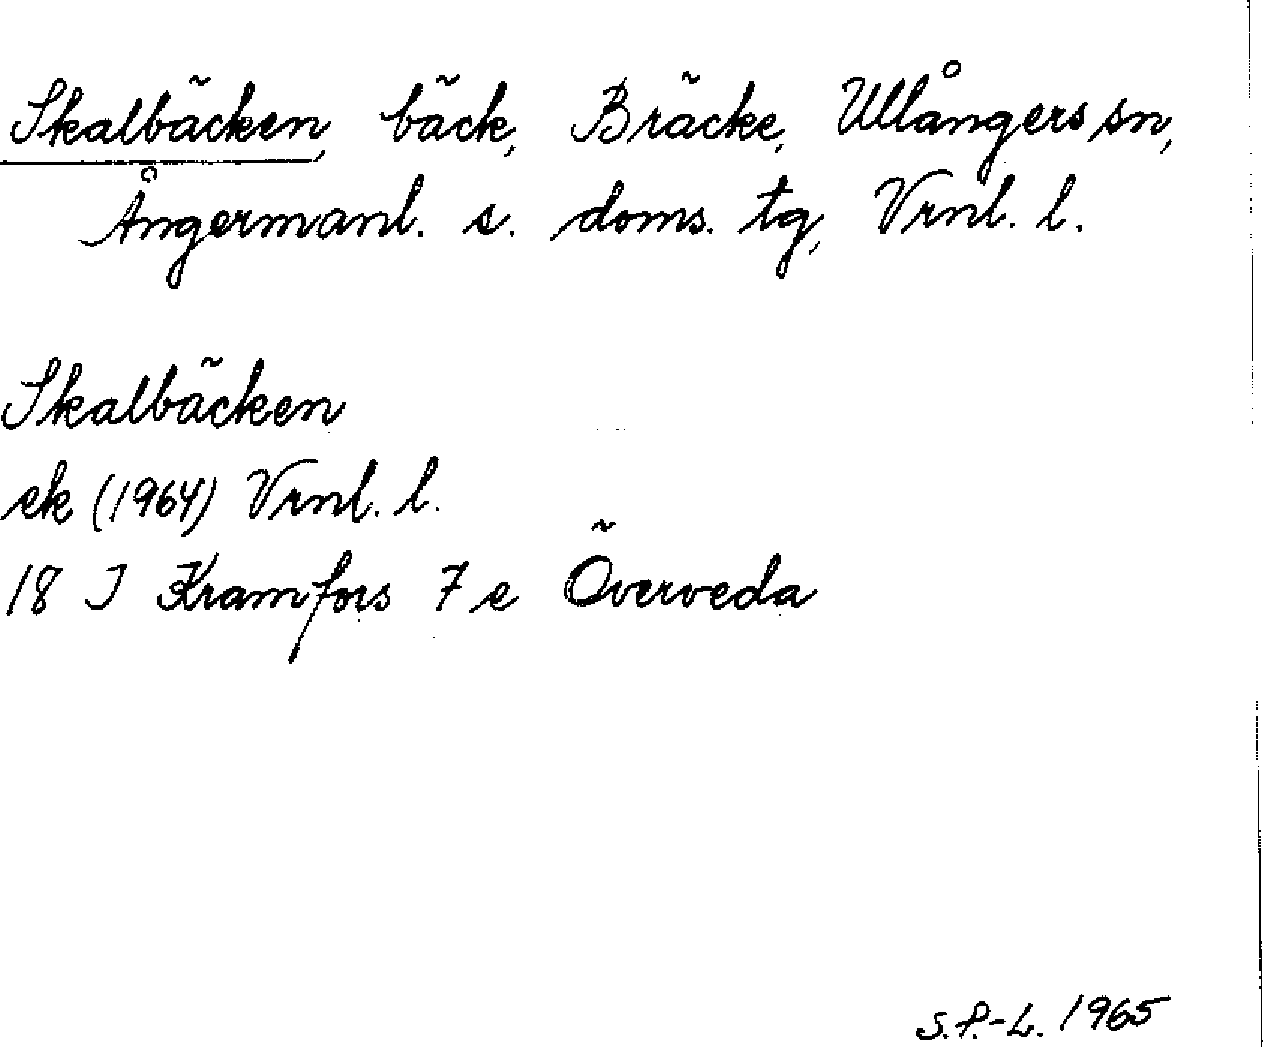 Skalbäcken, bäck, Bräcke, Ullångers sn,
Ångermanl. s. doms. tg, Vrnl. l.
Skalbäcken
ek (1964) Vrnl. l.
18 I Kramfors 7 e Överveda
S.P.-L. 1965